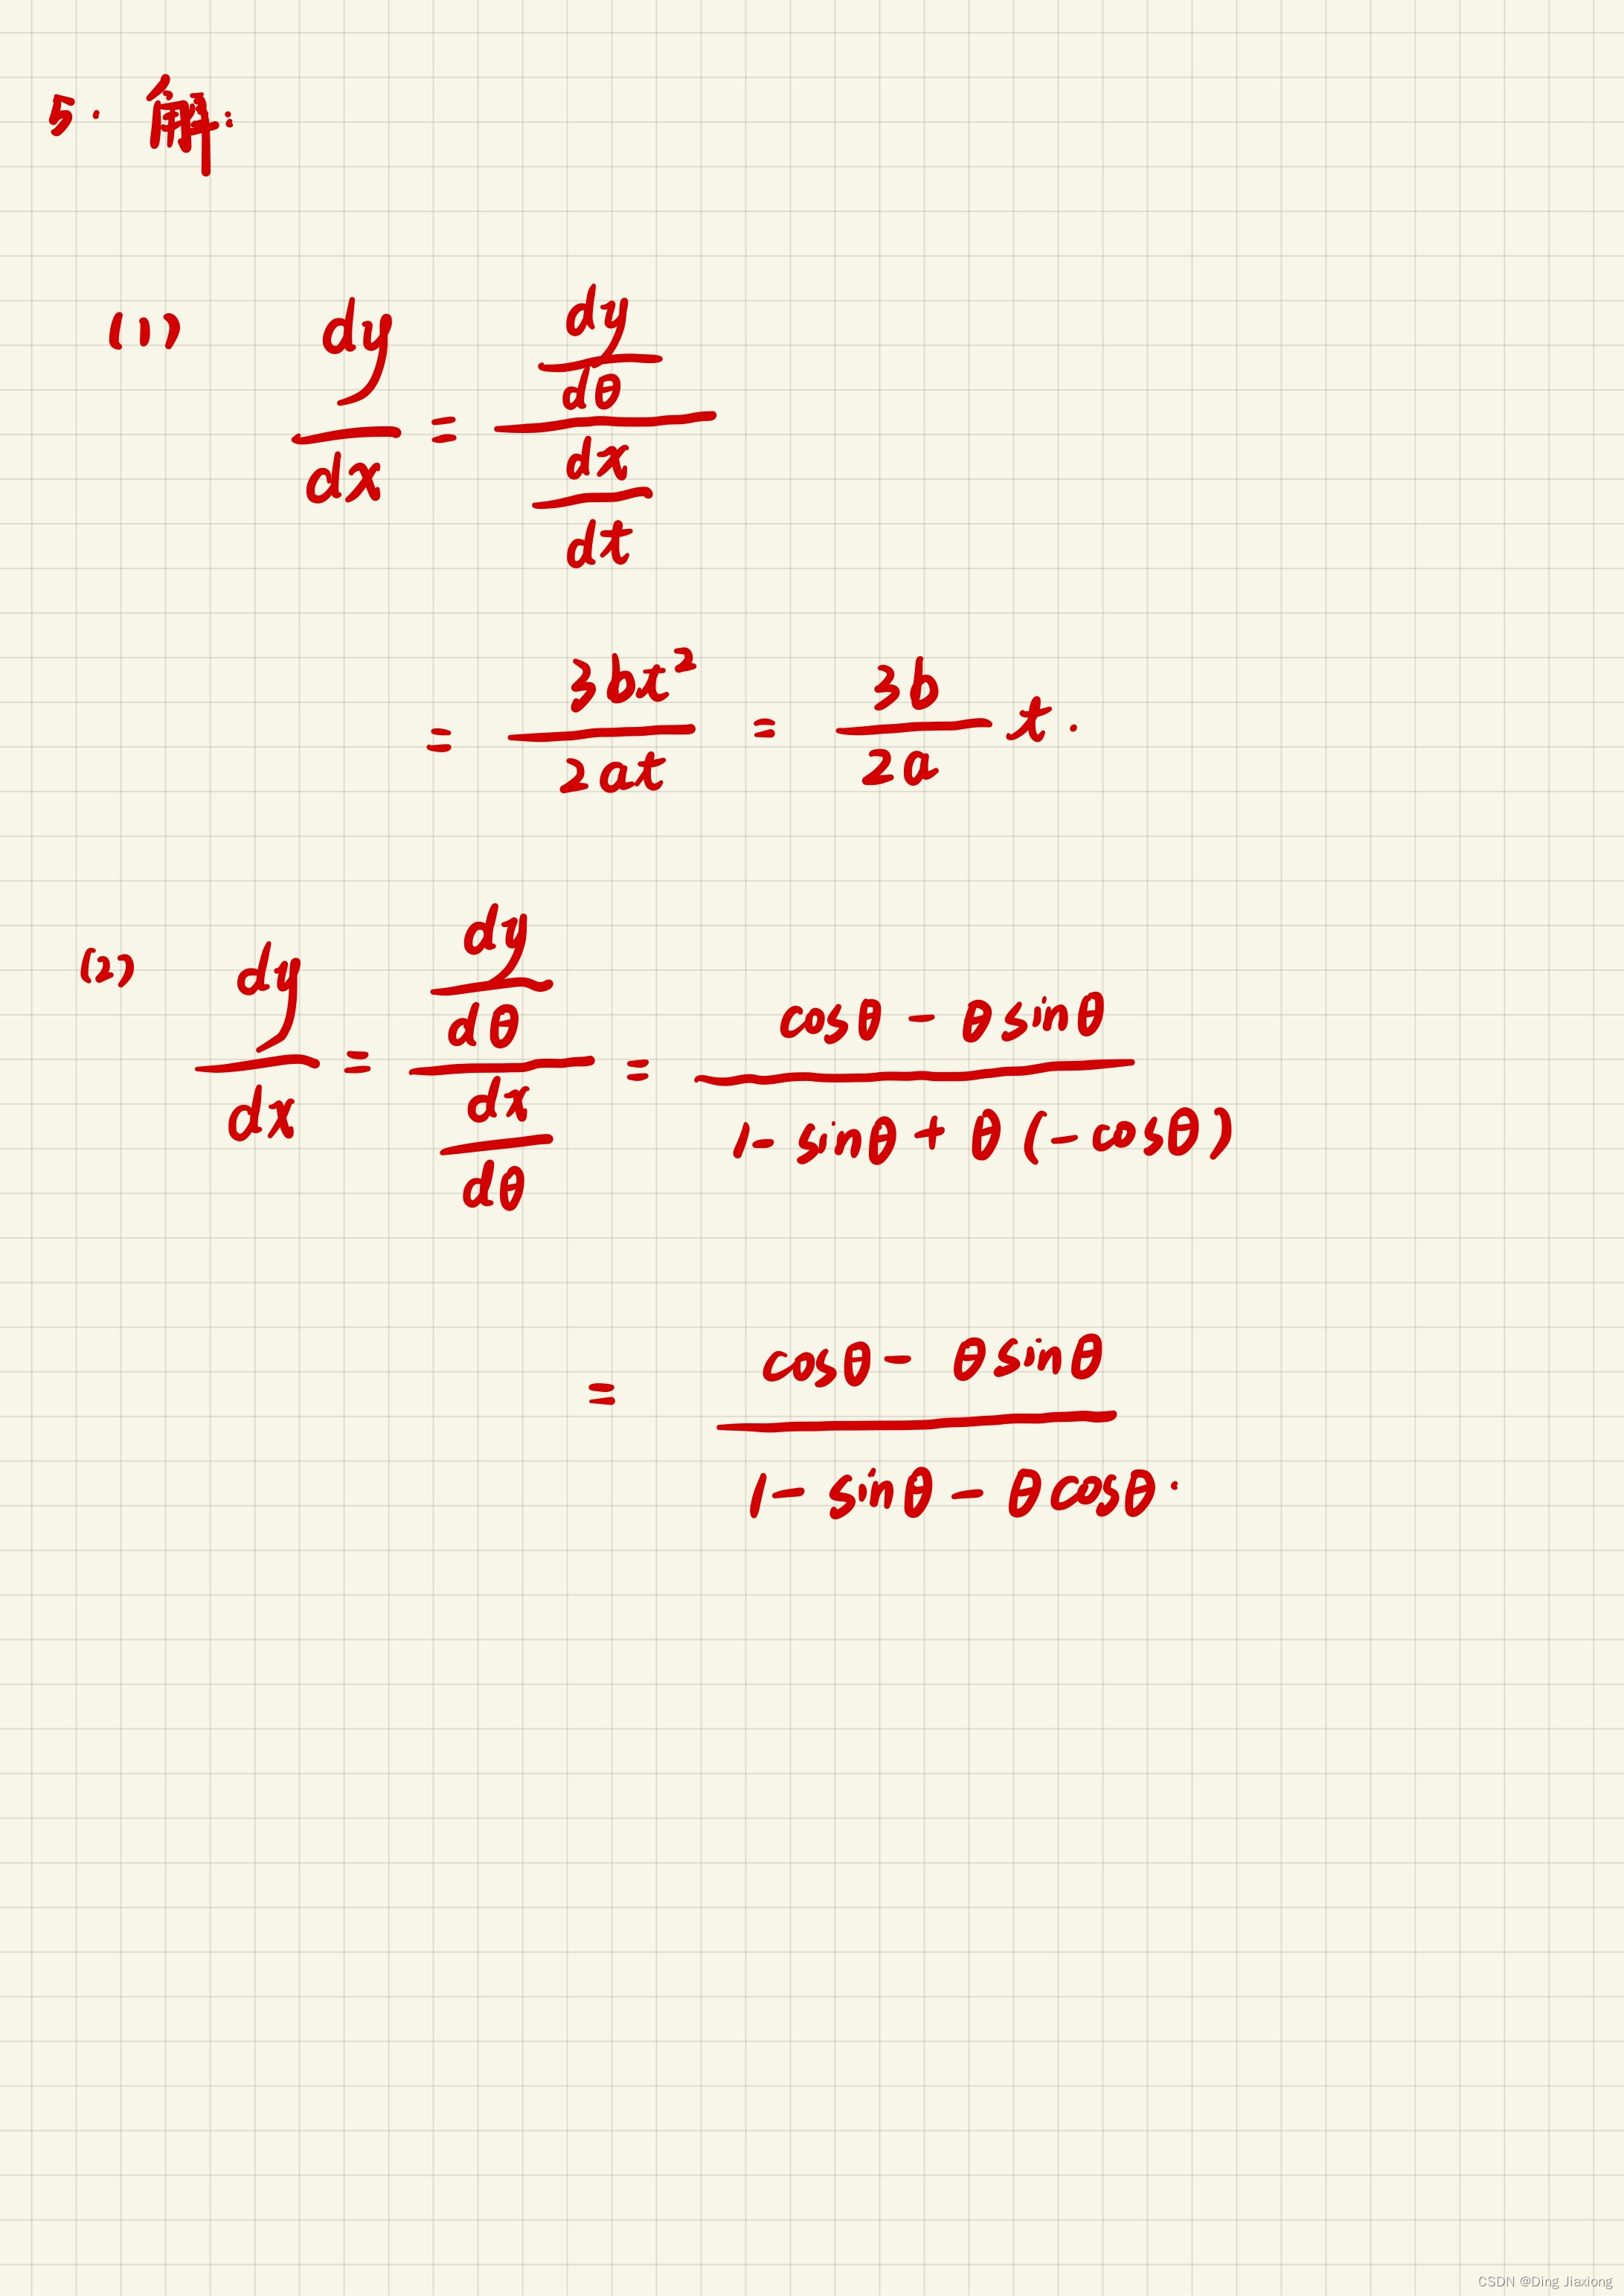 5. 解:
(1) dy/dx = (dy/dθ)/(dx/dt)
= 3bt²/2at = 3b/2a t.
(2) dy/dx = (dy/dθ)/(dx/dθ) = (cosθ - θsinθ)/(1 - sinθ + θ(-cosθ))
= (cosθ - θsinθ)/(1 - sinθ - θcosθ).
CSDN @Ding Jiaxiong